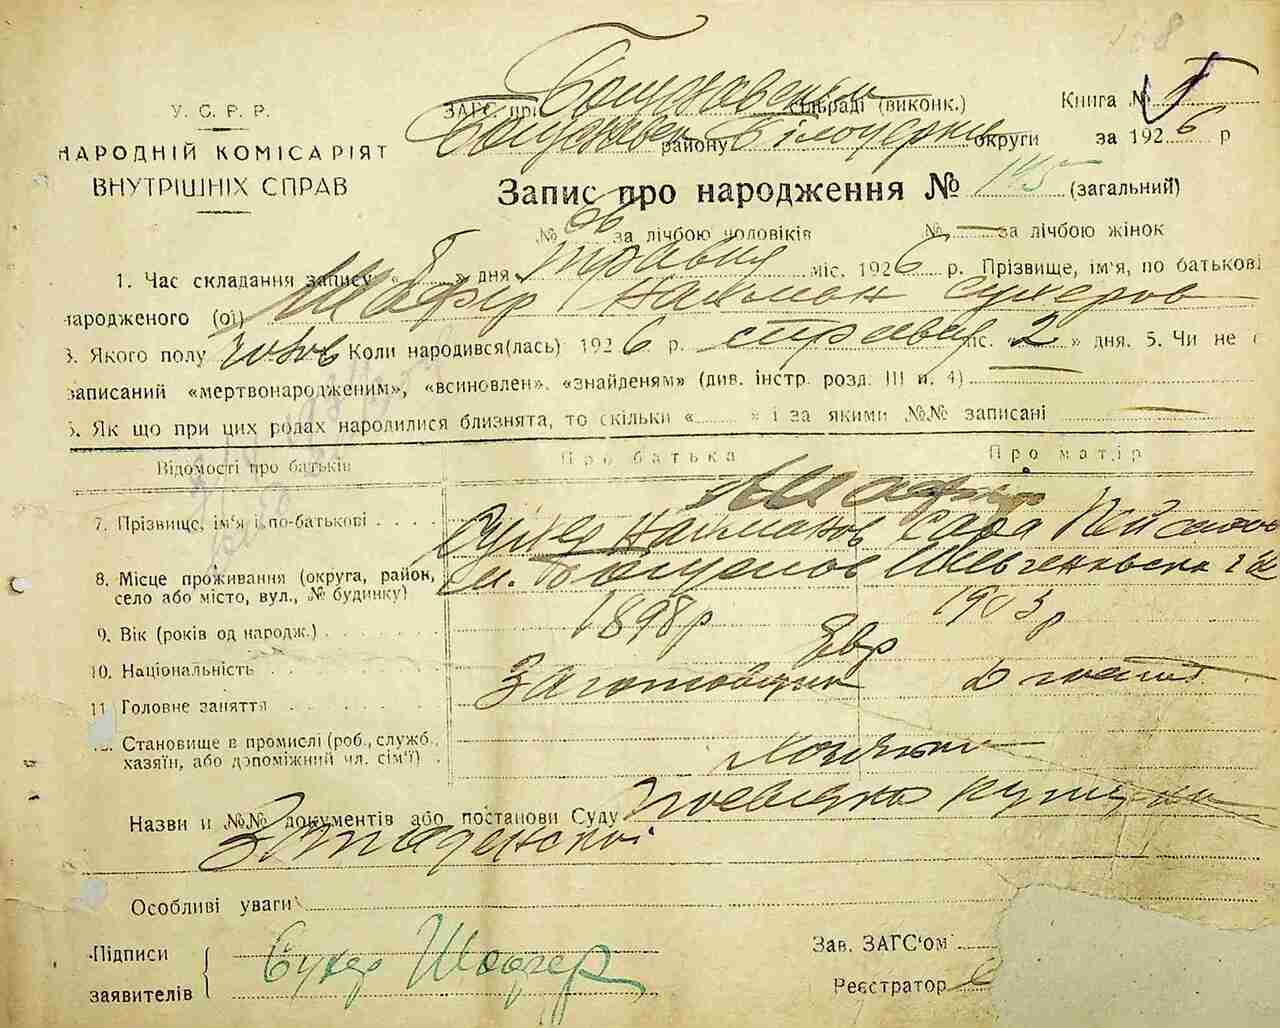 У. С. Р. Р.
НАРОДНІЙ КОМІСАРІЯТ
ВНУТРІШНІХ СПРАВ
ЗАГС. при сільраді (виконк.)
Книга №
району округи за 1926 р
Запис про народження № 145 (загальний)
№ 86 за лічбою чоловіків № — за лічбою жінок
1. Час складання запису « » дня травня міс. 1926 р. Прізвище, ім'я, по батькові
народженого (ої) Шафір Нахман Сухеров
3. Якого полу чолов Коли народився(лась) 1926 р. травня міс. «2» дня. 5. Чи не є
записаний «мертвонародженим», «всиновлен», «знайденям» (див. інстр. розд. III п. 4)
6. Як що при цих родах народилися близнята, то скільки « » і за якими №№ записані
Відомості про батьків Про батька Про матір
Шафір
7. Прізвище, ім'я і по-батькові Сухер Нахманов Сара
8. Місце проживання (округа, район,
село або місто, вул., № будинку) м.
9. Вік (років од народж.) 1898р 1903 р
10. Національність Євр
11. Головне заняття Заготовщик
12. Становище в промислі (роб., служб.,
хазяїн, або допоміжний чл. сім'ї)
Назви и №№ документів або постанови Суду
Особливі уваги
Підписи
заявителів
Сухер Шафер
Зав. ЗАГС'ом
Реєстратор